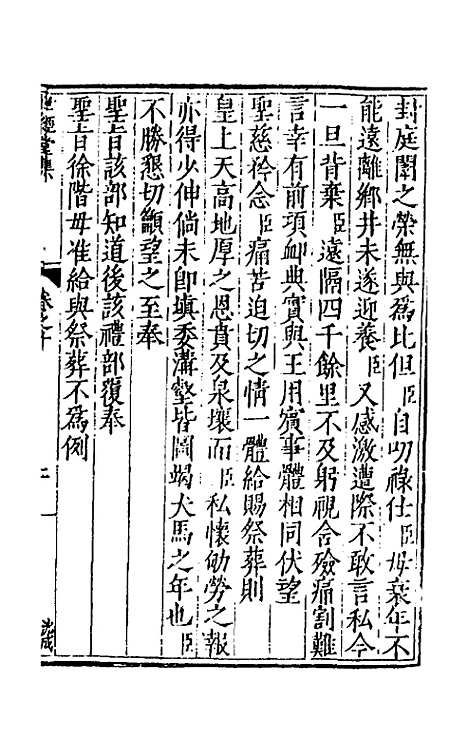 封庭闈之榮無與爲比但臣自叨祿仕臣母衰年不
能遠離鄉井未遂迎養臣又感激遭際不敢言私今
一旦背棄臣遠隔四千餘里不及躬視含殮痛割難
言幸有前項䘏典實與王用賔事體相同伏望
聖慈矜念臣痛苦迫切之情一體給賜祭葬則
皇上天高地厚之恩賁及泉壤而臣私懷劬勞之報
亦得少伸倘未卽塡委溝壑皆圖竭犬馬之年也臣
不勝懇切籲望之至奉
聖旨該部知道後該禮部覆奉
聖旨徐階母准給與祭葬不爲例
世經堂集
卷之十
二